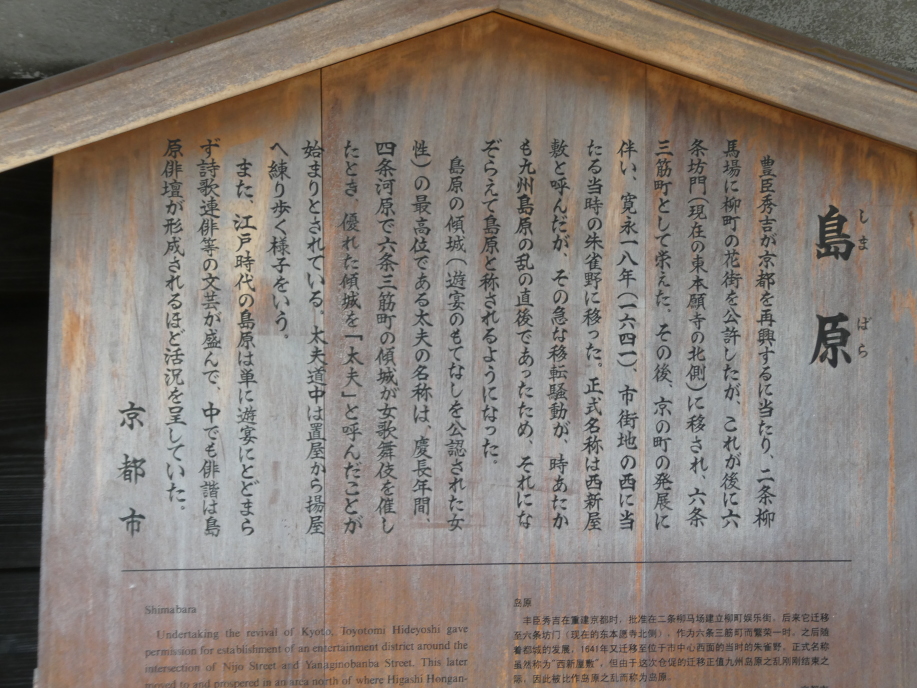 島原
しまばら
豊臣秀吉が京都を再興するに当たり、二条柳
馬場に柳町の花街を公許したが、これが後に六
条坊門(現在の東本願寺の北側)に移され、六条
三筋町として栄えた。その後、京の町の発展に
伴い、寛永一八年(一六四一)、市街地の西に当
たる当時の朱雀野に移った。正式名称は西新屋
敷と呼んだが、その急な移転騒動が、時あたか
も九州島原の乱の直後であったため、それにな
ぞらえて島原と称されるようになった。
島原の傾城(遊宴のもてなしを公認された女
性)の最高位である太夫の名称は、慶長年間、
四条河原で六条三筋町の傾城が女歌舞伎を催し
たとき、優れた傾城を「太夫」と呼んだことが
始まりとされている。太夫道中は置屋から揚屋
へ練り歩く様子をいう。
また、江戸時代の島原は単に遊宴にとどまら
ず詩歌連俳等の文芸が盛んで、中でも俳諧は島
原俳壇が形成されるほど活況を呈していた。
京都市
Shimabara
Undertaking the revival of Kyoto, Toyotomi Hideyoshi gave
permission for establishment of an entertainment district around the
intersection of Nijo Street and Yanaginobanba Street. This later
moved to and prospered in an area north of where Higashi Hongan-
岛原
丰臣秀吉在重建京都时，批准在二条柳马场建立柳町娱乐街，后来它迁移
至六条坊门（现在的东本愿寺北侧），作为六条三筋町而繁荣一时，之后随
着都城的发展，1641年又迁移至位于市中心西面的当时的朱雀野，正式名称
虽然称为“西新屋敷”，但由于这次仓促的迁移正值九州岛原之乱刚刚结束之
际，因此被比作岛原之乱而称为岛原。